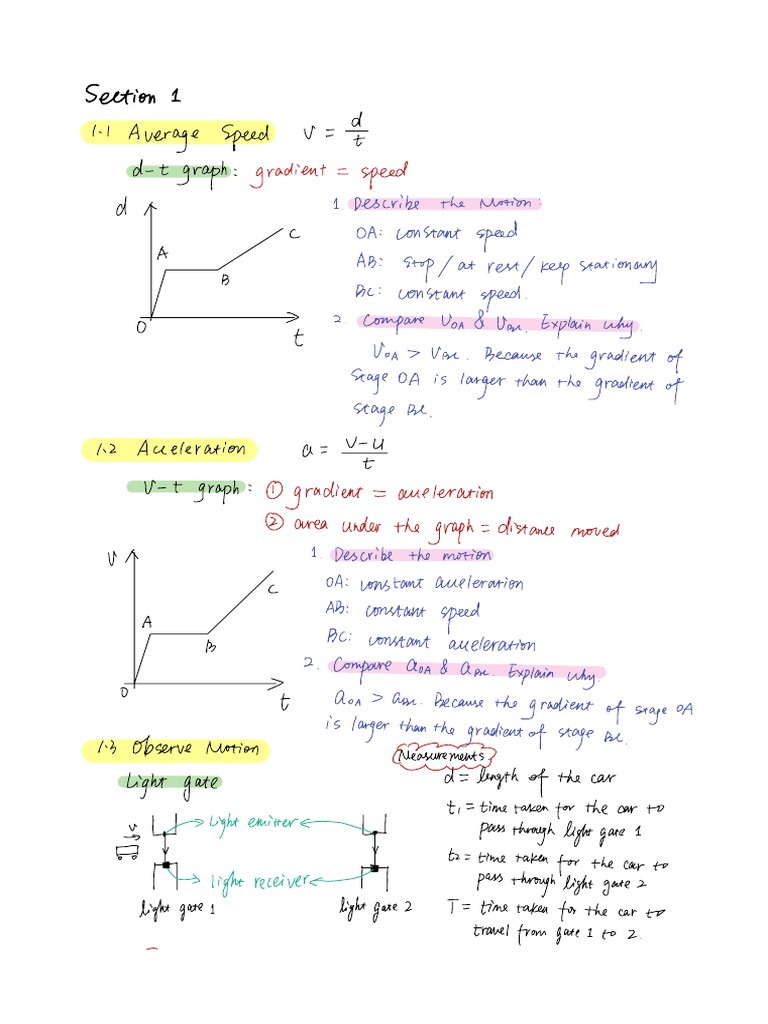 Section 1
1.1 Average Speed v = d/t
d-t graph: gradient = speed
d
A
B
C
O
t
1. Describe the Motion:
OA: constant speed
AB: stop / at rest / keep stationary
BC: constant speed.
2. Compare VOA & VBC. Explain why.
VOA > VBC. Because the gradient of
stage OA is larger than the gradient of
stage BC.
1.2 Acceleration a = v-u/t
v-t graph: ① gradient = acceleration
② area under the graph = distance moved
v
A
B
C
O
t
1. Describe the motion
OA: constant acceleration
AB: constant speed
BC: constant acceleration
2. Compare aOA & aBC. Explain why.
aOA > aBC. Because the gradient of stage OA
is larger than the gradient of stage BC.
1.3 Observe Motion
Light gate
v
light emitter
light receiver
light gate 1
light gate 2
Measurements
d = length of the car
t1 = time taken for the car to
pass through light gate 1
t2 = time taken for the car to
pass through light gate 2
T = time taken for the car to
travel from gate 1 to 2.